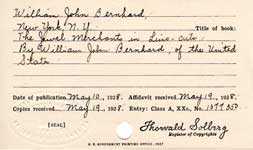 William John Bernhard,
New York, N.Y. Title of book:
The Jewel Merchants in Line-cuts.
By William John Bernhard, of the United
States.
Date of publication May 10, 1928. Affidavit received May 19, 1928.
Copies received May 19, 1928. Entry: Class A, XXc, No. 1077350
[SEAL] Thorvald Solberg
Register of Copyrights
U. S. GOVERNMENT PRINTING OFFICE, 1927